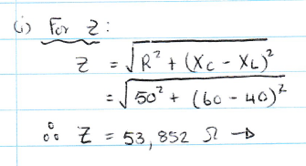 (i) For Z:
Z = √R² + (Xc - XL)²
= √50² + (60 - 40)²
∴ Z = 53,852 Ω →